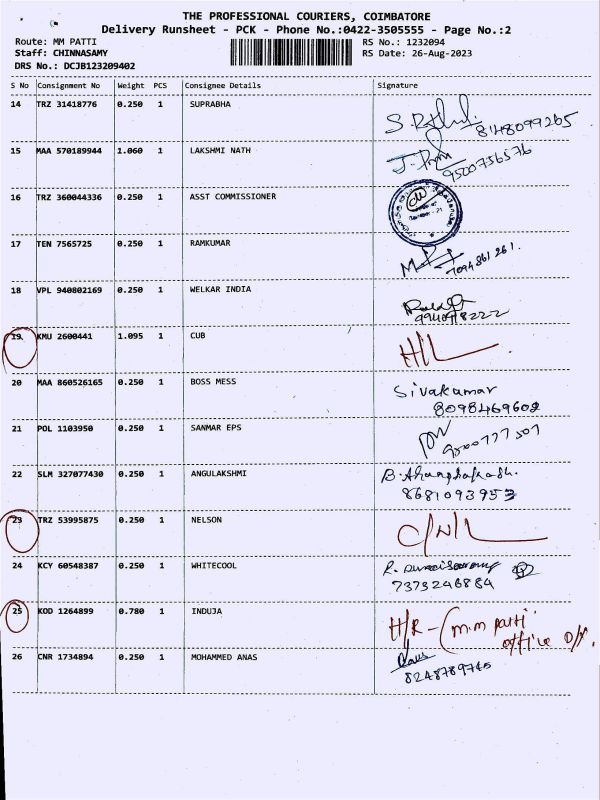 THE PROFESSIONAL COURIERS, COIMBATORE
Delivery Runsheet - PCK - Phone No.:0422-3505555 - Page No.:2
Route: MM PATTI RS No.: 1232094
Staff: CHINNASAMY RS Date: 26-Aug-2023
DRS No.: DCJB123209402
S No Consignment No Weight PCS Consignee Details Signature
14 TRZ 31418776 0.250 1 SUPRABHA
8148099265
15 MAA 570189944 1.060 1 LAKSHMI NATH
9500736576
16 TRZ 360044336 0.250 1 ASST COMMISSIONER
17 TEN 7565725 0.250 1 RAMKUMAR
7094861261.
18 VPL 940802169 0.250 1 WELKAR INDIA
19 KMU 2600441 1.095 1 CUB
H/L
20 MAA 860526165 0.250 1 BOSS MESS
Sivakumar
8098469602
21 POL 1103950 0.250 1 SANMAR EPS
22 SLM 327077430 0.250 1 ANGULAKSHMI
8681093953
23 TRZ 53995875 0.250 1 NELSON
C/N/L
24 KCY 60548387 0.250 1 WHITECOOL
7373246884
25 KOD 1264899 0.780 1 INDUJA
H/R - (m.m patti
office
26 CNR 1734894 0.250 1 MOHAMMED ANAS
8248789745